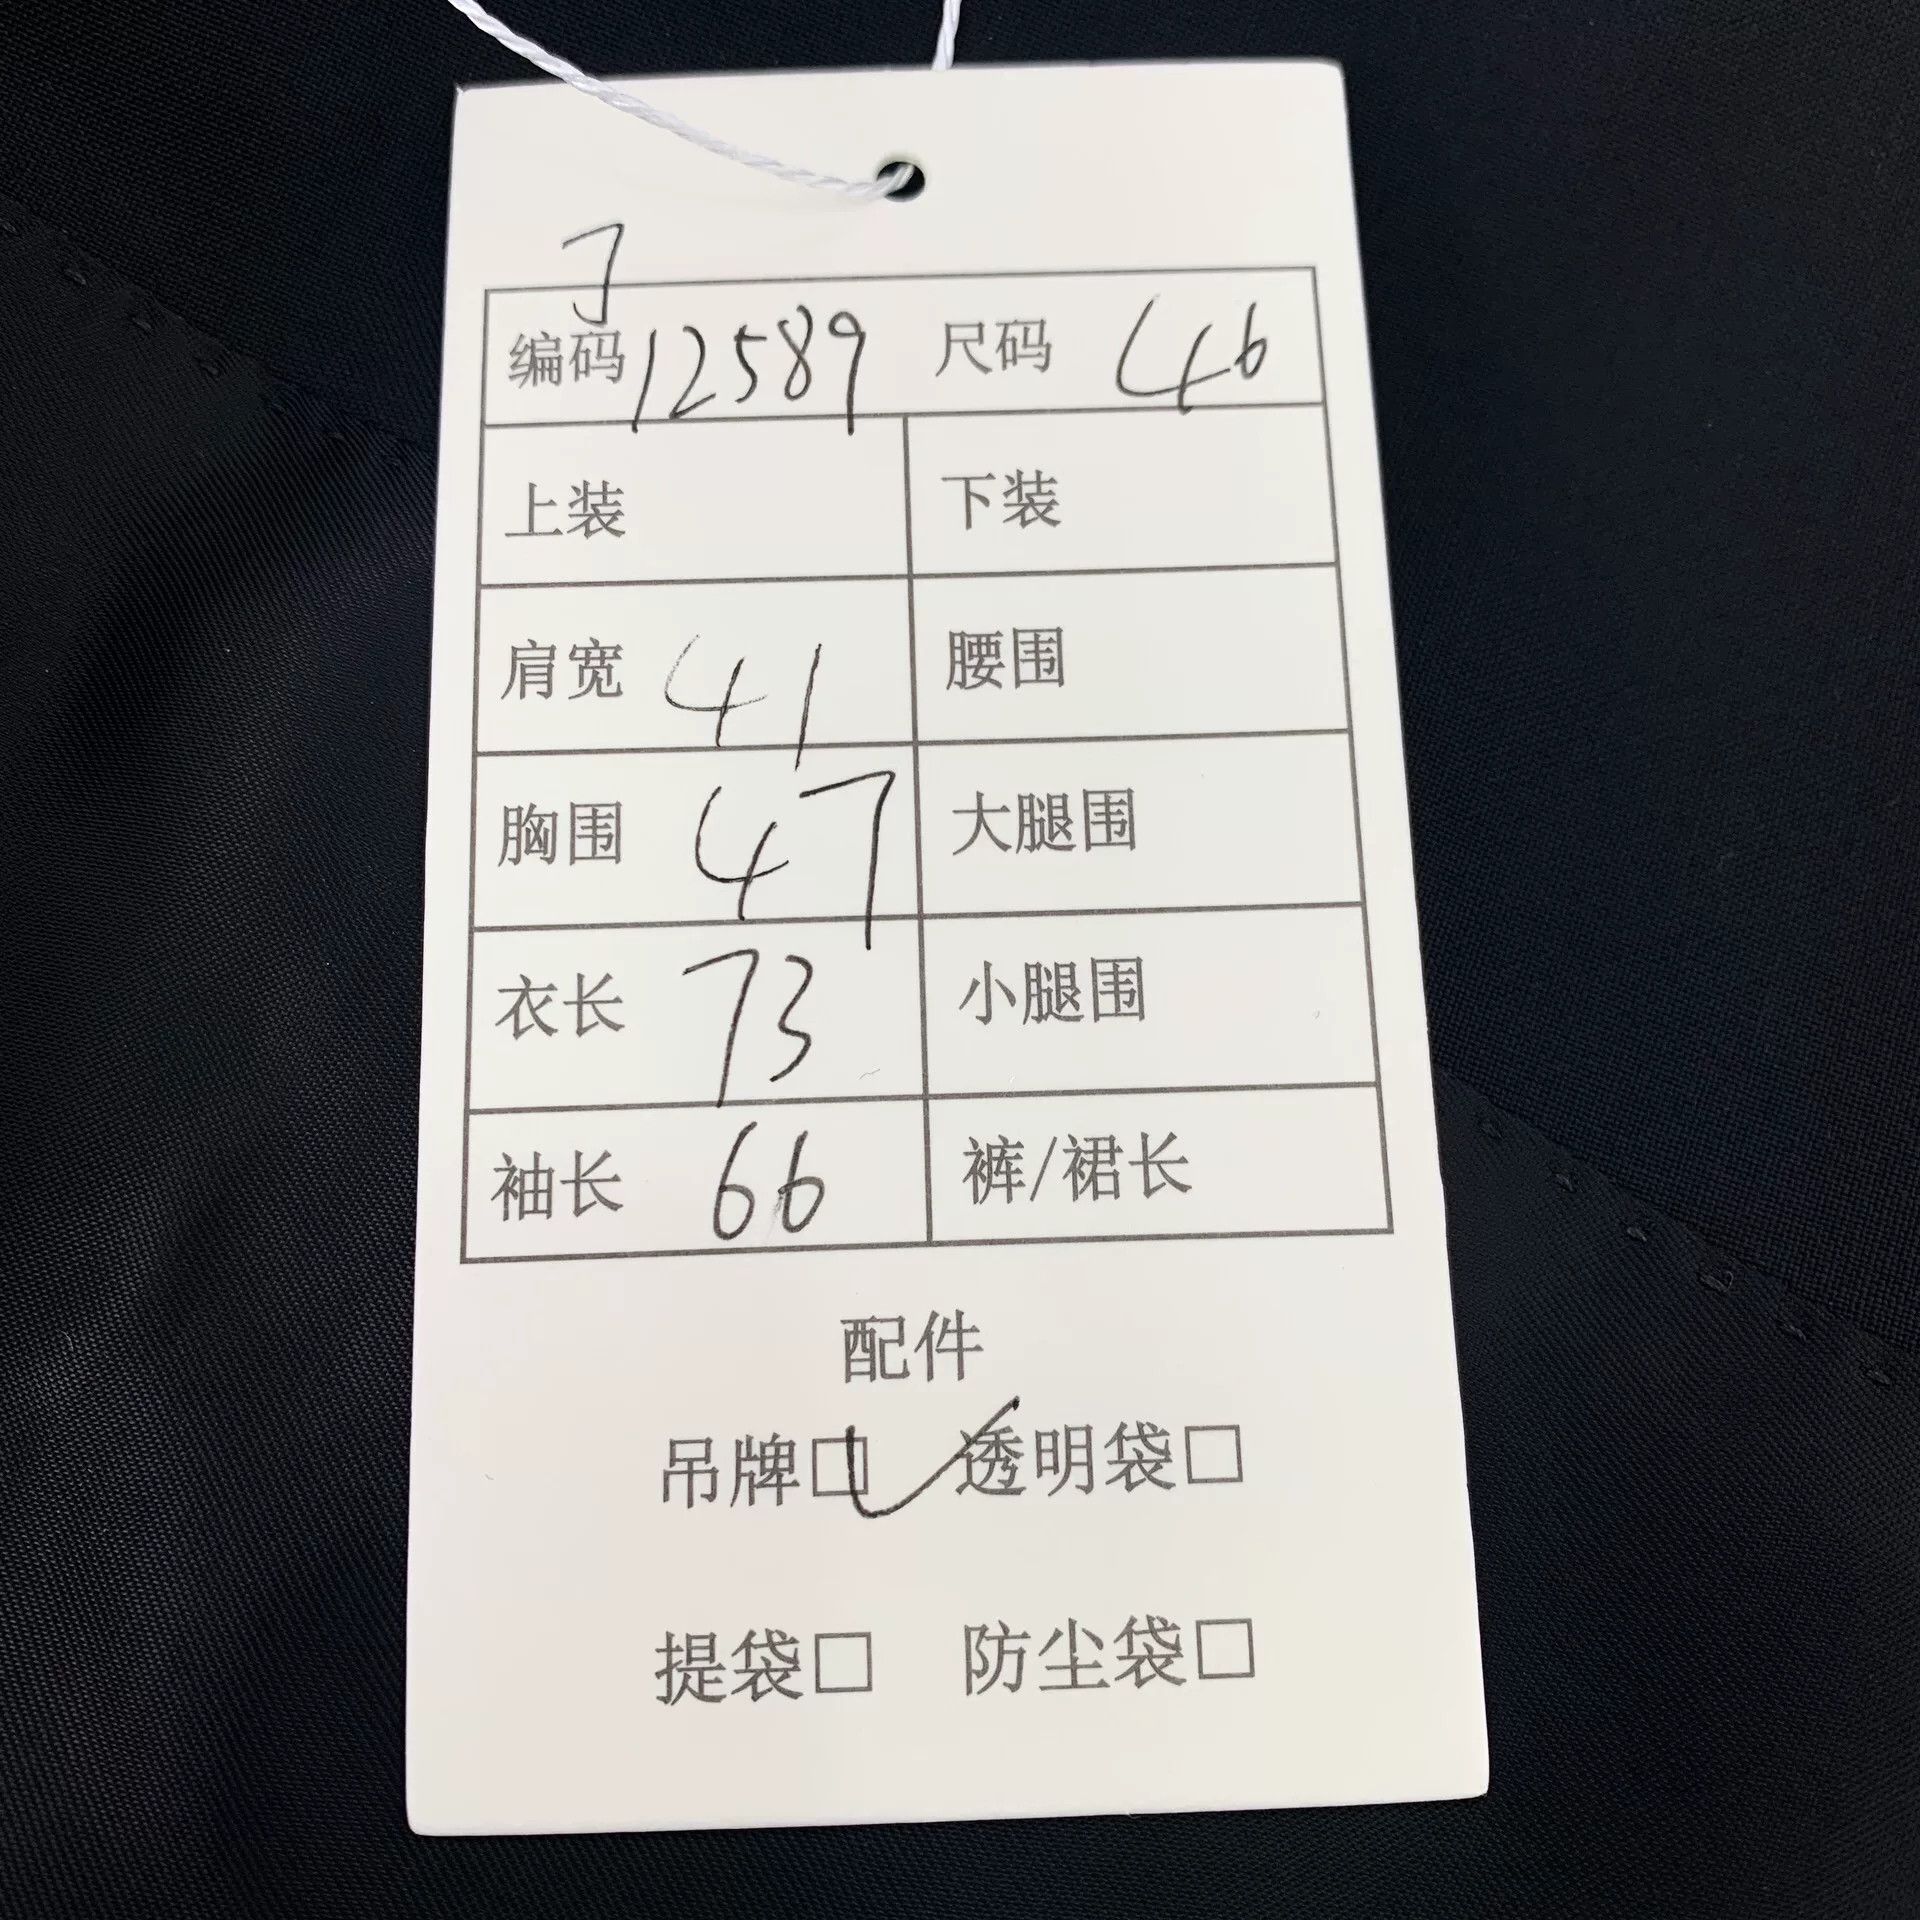 J
编码 12589 尺码 46
上装 下装
肩宽 41 腰围
胸围 47 大腿围
衣长 73 小腿围
袖长 66 裤/裙长
配件
吊牌□✓ 透明袋□
提袋□ 防尘袋□